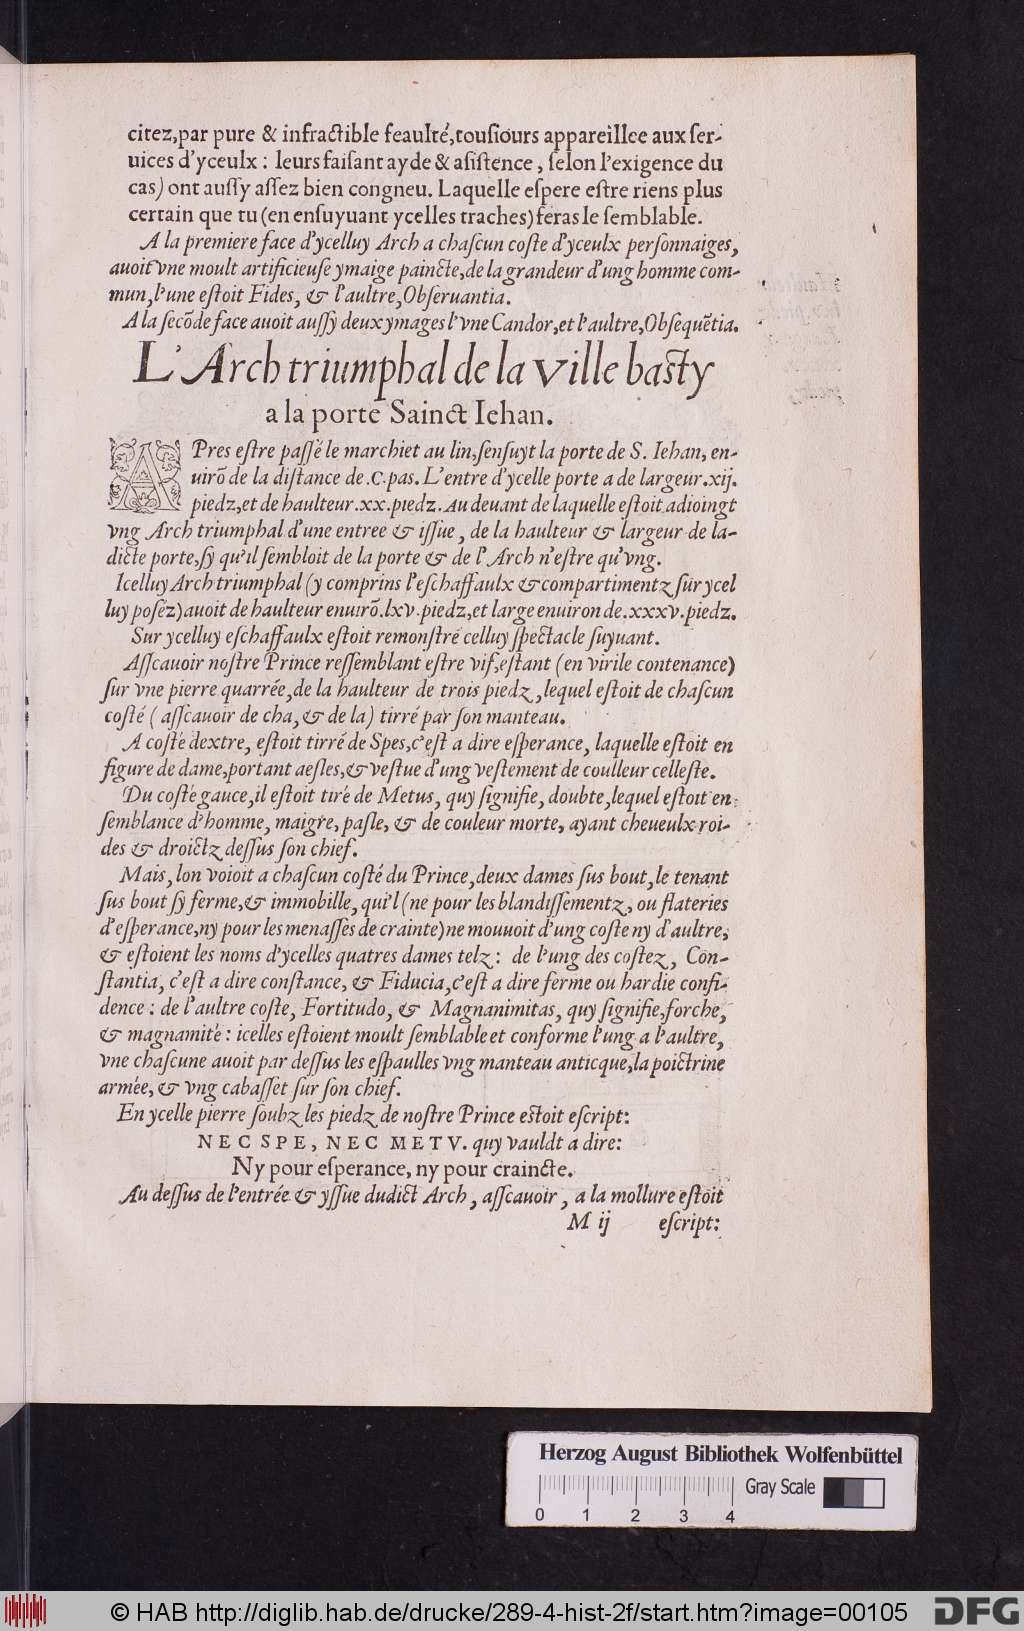 citez,par pure & infractible feaulté,touſiours appareillee aux ſer-
uices d'yceulx : leurs faiſant ayde & aſiſtence , ſelon l'exigence du
cas) ont auſſy aſſez bien congneu. Laquelle eſpere eſtre riens plus
certain que tu (en enſuyuant ycelles traches) feras le ſemblable.
A la premiere face d'ycelluy Arch a chaſcun coſte d'yceulx perſonnaiges,
auoit vne moult artificieuſe ymaige paincte,de la grandeur d'ung homme com-
mun,l'une eſtoit Fides, & l'aultre,Obſeruantia.
A la ſecõde face auoit auſſy deux ymages l'vne Candor,et l'aultre,Obſequẽtia.
L'Arch triumphal de la Ville baſty
a la porte Sainct Iehan.
APres eſtre paſſé le marchiet au lin,ſenſuyt la porte de S. Iehan, en-
uirõ de la diſtance de .C.pas. L'entre d'ycelle porte a de largeur.xij.
piedz,et de haulteur.xx.piedz. Au deuant de laquelle eſtoit adioingt
vng Arch triumphal d'une entree & iſſue , de la haulteur & largeur de la-
dicte porte,ſy qu'il ſembloit de la porte & de l'Arch n'eſtre qu'vng.
Icelluy Arch triumphal (y comprins l'eſchaffaulx & compartimentz ſur ycel
luy poſéz) auoit de haulteur enuirõ.lxv.piedz,et large enuiron de.xxxv.piedz.
Sur ycelluy eſchaffaulx eſtoit remonſtré celluy ſpectacle ſuyuant.
Aſſcauoir noſtre Prince reſſemblant eſtre vif,eſtant (en virile contenance)
ſur vne pierre quarrée,de la haulteur de trois piedz ,lequel eſtoit de chaſcun
coſté ( aſſcauoir de cha, & de la) tirré par ſon manteau.
A coſté dextre, eſtoit tirré de Spes,c'eſt a dire eſperance, laquelle eſtoit en
figure de dame,portant aeſles,& veſtue d'ung veſtement de coulleur celleſte.
Du coſté gauce,il eſtoit tiré de Metus, quy ſignifie, doubte,lequel eſtoit en
ſemblance d'homme, maigre, paſle, & de couleur morte, ayant cheueulx roi-
des & droictz deſſus ſon chief.
Mais, lon voioit a chaſcun coſté du Prince,deux dames ſus bout,le tenant
ſus bout ſy ferme,& immobille, qui'l (ne pour les blandiſſementz, ou flateries
d'eſperance,ny pour les menaſſes de crainte) ne mouuoit d'ung coſte ny d'aultre,
& eſtoient les noms d'ycelles quatres dames telz : de l'ung des coſtez, Con-
ſtantia, c'eſt a dire conſtance, & Fiducia,c'eſt a dire ferme ou hardie confi-
dence : de l'aultre coſte, Fortitudo, & Magnanimitas, quy ſignifie,forche,
& magnamité : icelles eſtoient moult ſemblable et conforme l'ung a l'aultre,
vne chaſcune auoit par deſſus les eſpaulles vng manteau anticque,la poictrine
armée, & vng cabaſſet ſur ſon chief.
En ycelle pierre ſoubz les piedz de noſtre Prince eſtoit eſcript:
NEC SPE, NEC METV. quy vauldt a dire:
Ny pour eſperance, ny pour craincte.
Au deſſus de l'entrée & yſſue dudict Arch , aſſcauoir , a la mollure eſtoit
M ij eſcript:
Herzog August Bibliothek Wolfenbüttel
Gray Scale
0 1 2 3 4
© HAB http://diglib.hab.de/drucke/289-4-hist-2f/start.htm?image=00105
DFG